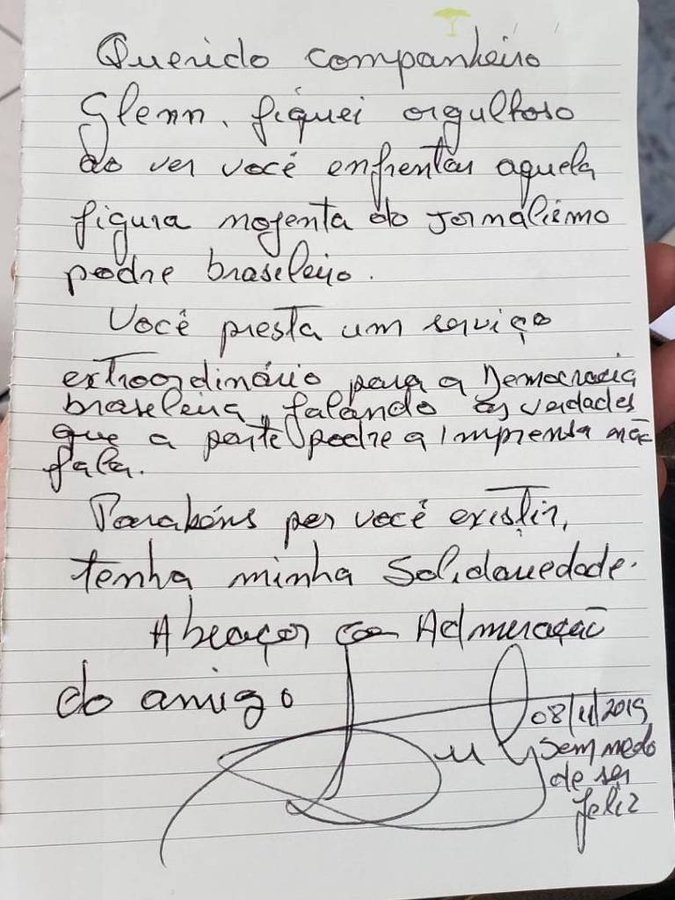 Querido companheiro
Glenn, fiquei orgulhoso
ao ver você enfrentar aquela
figura nojenta do jornalismo
podre brasileiro.
Você presta um serviço
extraordinário para a Democracia
brasileira, falando as verdades
que a parte podre a imprensa não
fala.
Parabéns por você existir,
tenha minha Solidariedade.
Abraços com Admiração
do amigo
Lula
08/11/2019
Sem medo
de ser
feliz